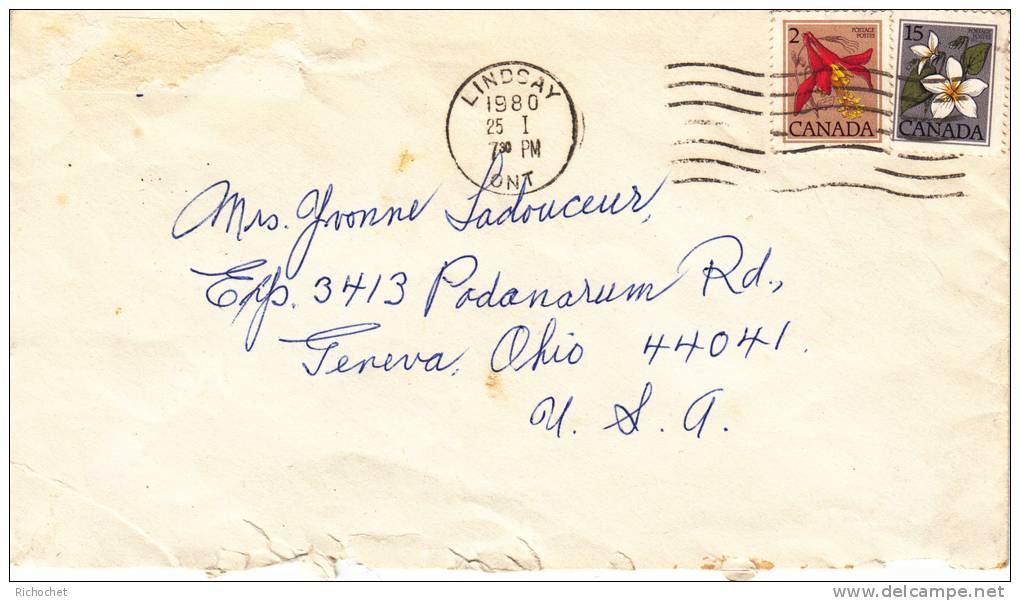 LINDSAY
1980
25 I
7 30 PM
ONT
2
POSTAGE
POSTES
CANADA
15
POSTAGE
POSTES
CANADA
Mrs. Yvonne Ladouceur,
Exp. 3413 Podanarum Rd.,
Geneva, Ohio 44041.
U. S. A.
Richochet
delcampe.net